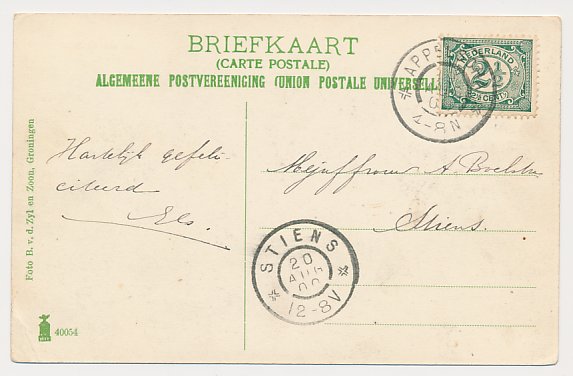 BRIEFKAART
(CARTE POSTALE)
ALGEMEENE POSTVEREENIGING (UNION POSTALE UNIVERSELLE
NEDERLAND
2½
2½ CENT
APPE
4-8N
Hartelijk gefeli-
citeerd
Els.
Mejuffrouw A.
Stiens.
STIENS
20
AUG
12-8V
Foto B. v. d. Zyl en Zoon, Groningen
40054